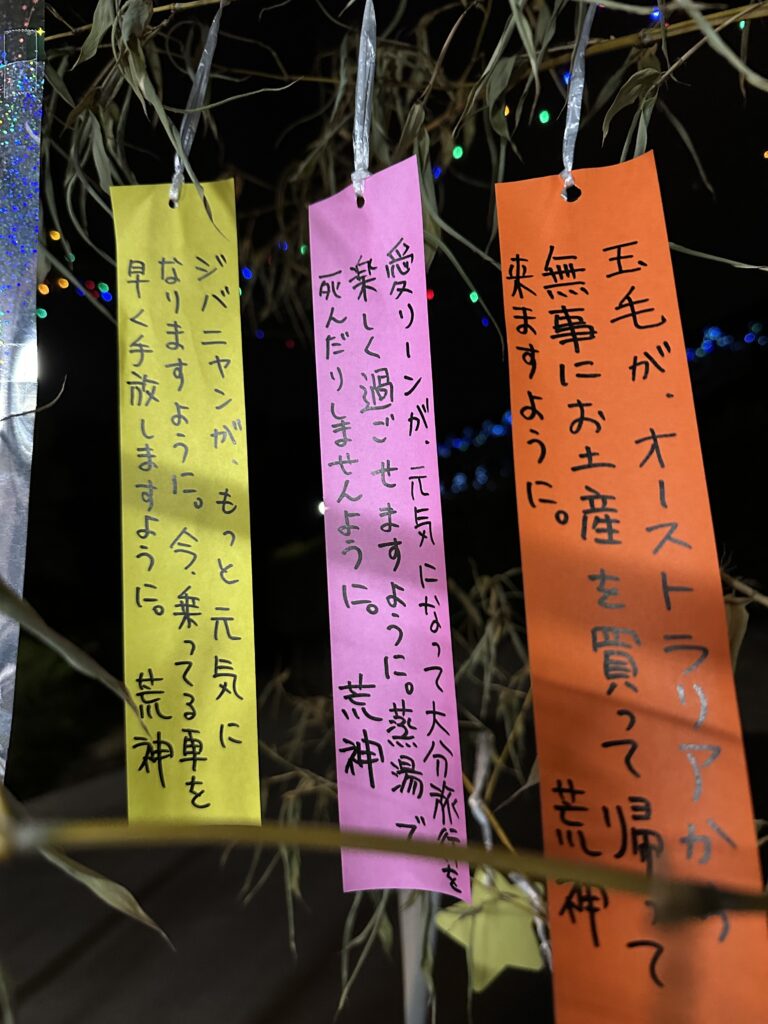 玉毛が、オーストラリアから
無事にお土産を買って帰って
来ますように。
荒神
愛リーンが、元気になって大分旅行を
楽しく過ごせますように。蒸湯で
死んだりしませんように。
荒神
ジバニャンが、もっと元気に
なりますように。今、乗ってる車を
早く手放しますように。
荒神